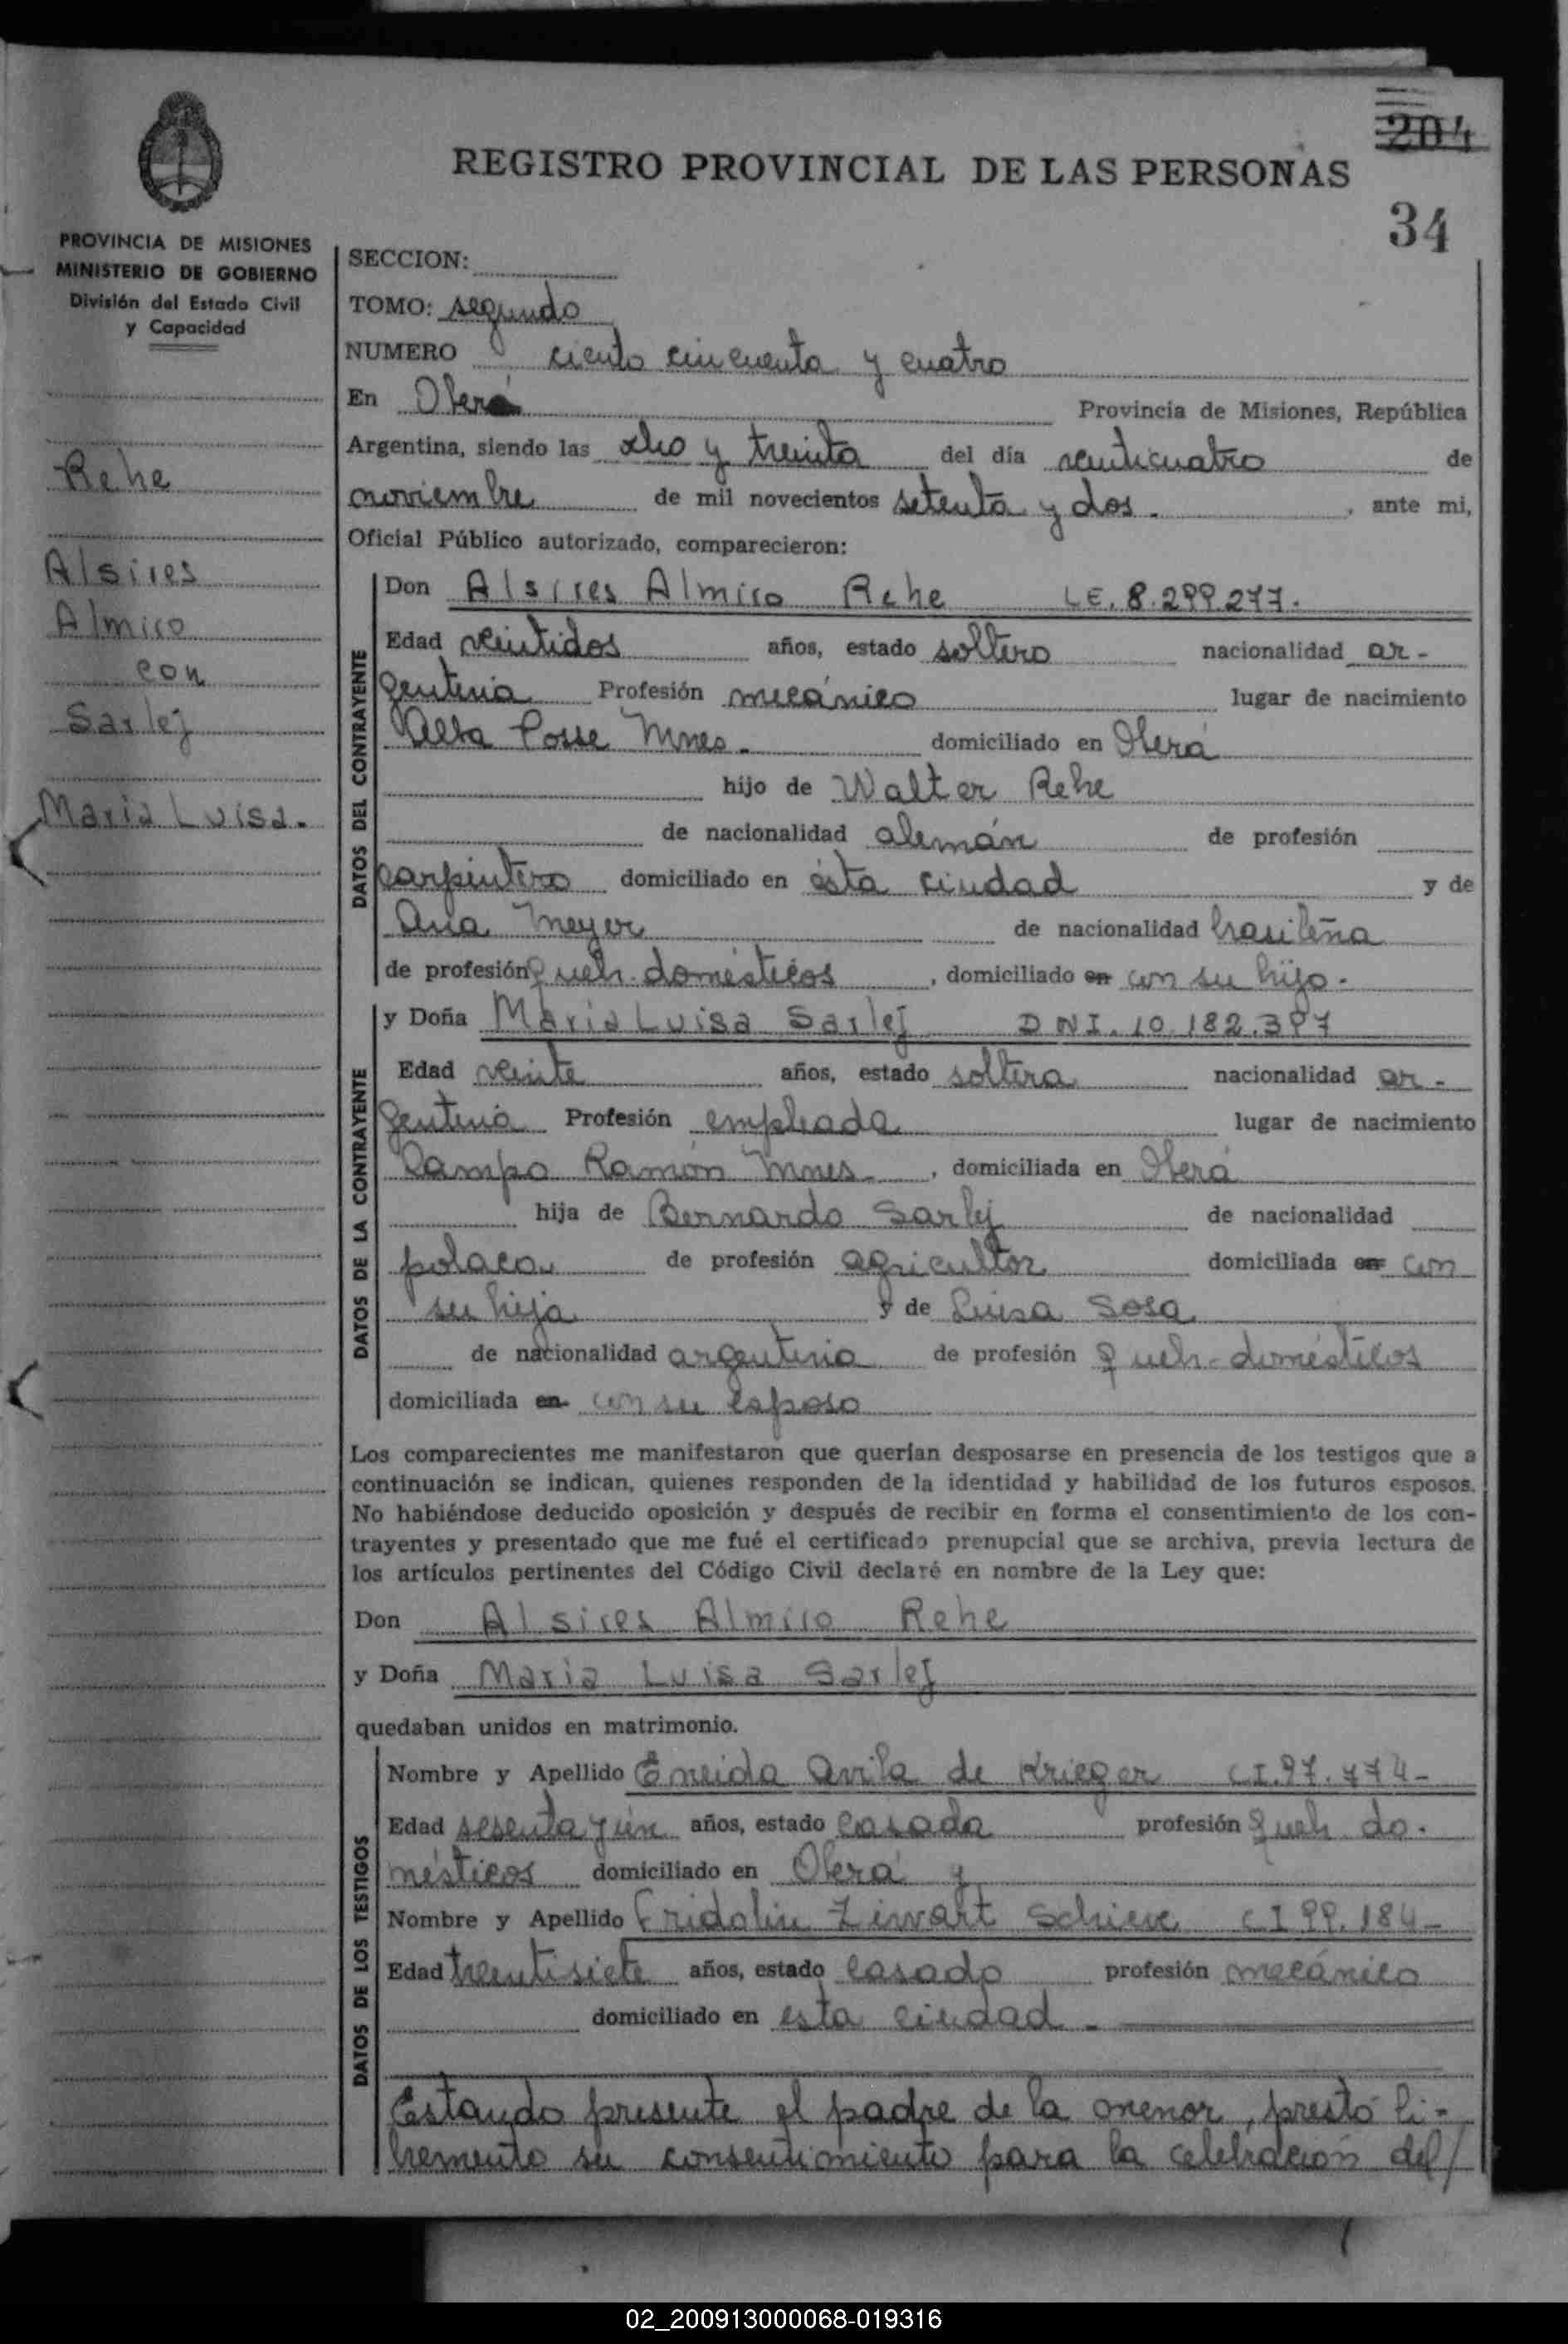 204
REGISTRO PROVINCIAL DE LAS PERSONAS
34
PROVINCIA DE MISIONES
MINISTERIO DE GOBIERNO
División del Estado Civil
y Capacidad
Rehe
Alsires
Almiro
con
Sarlej
Maria Luisa.
SECCION:
TOMO: segundo
NUMERO ciento cincuenta y cuatro
En Oberá Provincia de Misiones, República
Argentina, siendo las ocho y treinta del día veinticuatro de
noviembre de mil novecientos setenta y dos. , ante mi,
Oficial Público autorizado, comparecieron:
DATOS DEL CONTRAYENTE
Don Alsires Almiro Rehe LE. 8.299.277.
Edad veintidos años, estado soltero nacionalidad ar-
gentina Profesión mecánico lugar de nacimiento
Alba Posse Mnes. domiciliado en Oberá
hijo de Walter Rehe
de nacionalidad alemán de profesión
carpintero domiciliado en ésta ciudad y de
Ana Meyer de nacionalidad brasileña
de profesión queh. domésticos , domiciliado en con su hijo.
DATOS DE LA CONTRAYENTE
y Doña Maria Luisa Sarlej DNI. 10.182.397
Edad veinte años, estado soltera nacionalidad ar-
gentina Profesión empleada lugar de nacimiento
Campo Ramón Mnes. , domiciliada en Oberá
hija de Bernardo Sarlej de nacionalidad
polaca de profesión agricultor domiciliada en con
su hija y de Luisa Sosa
de nacionalidad argentina de profesión queh-domésticos
domiciliada en con su esposo
Los comparecientes me manifestaron que querían desposarse en presencia de los testigos que a
continuación se indican, quienes responden de la identidad y habilidad de los futuros esposos.
No habiéndose deducido oposición y después de recibir en forma el consentimiento de los con-
trayentes y presentado que me fué el certificado prenupcial que se archiva, previa lectura de
los artículos pertinentes del Código Civil declaré en nombre de la Ley que:
Don Alsires Almiro Rehe
y Doña Maria Luisa Sarlej
quedaban unidos en matrimonio.
DATOS DE LOS TESTIGOS
Nombre y Apellido Eneida Avila de Krieger CI.97.774-
Edad sesenta y un años, estado casada profesión queh do-
mésticos domiciliado en Oberá y
Nombre y Apellido Fridolin Ziwart Schieve CI 99.184-
Edad treintisiete años, estado casado profesión mecánico
domiciliado en esta ciudad.
Estando presente el padre de la menor, prestó li-
bremente su consentimiento para la celebración del/
02_200913000068-019316